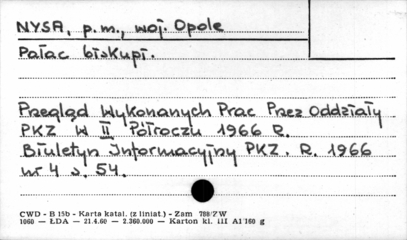 NYSA, p.m., woj. Opole
Pałac biskupi.
Przegląd Wykonanych Prac Przez Oddziały
PKZ W II Półroczu 1966 R.
Biuletyn Informacyjny PKZ. R. 1966
nr 4 s. 54.
CWD - B 15b - Karta katal. (z liniat.) - Zam 788/ZW
1060 — ŁDA — 21.4.60 — 2.360.000 — Karton kl. III A1 160 g